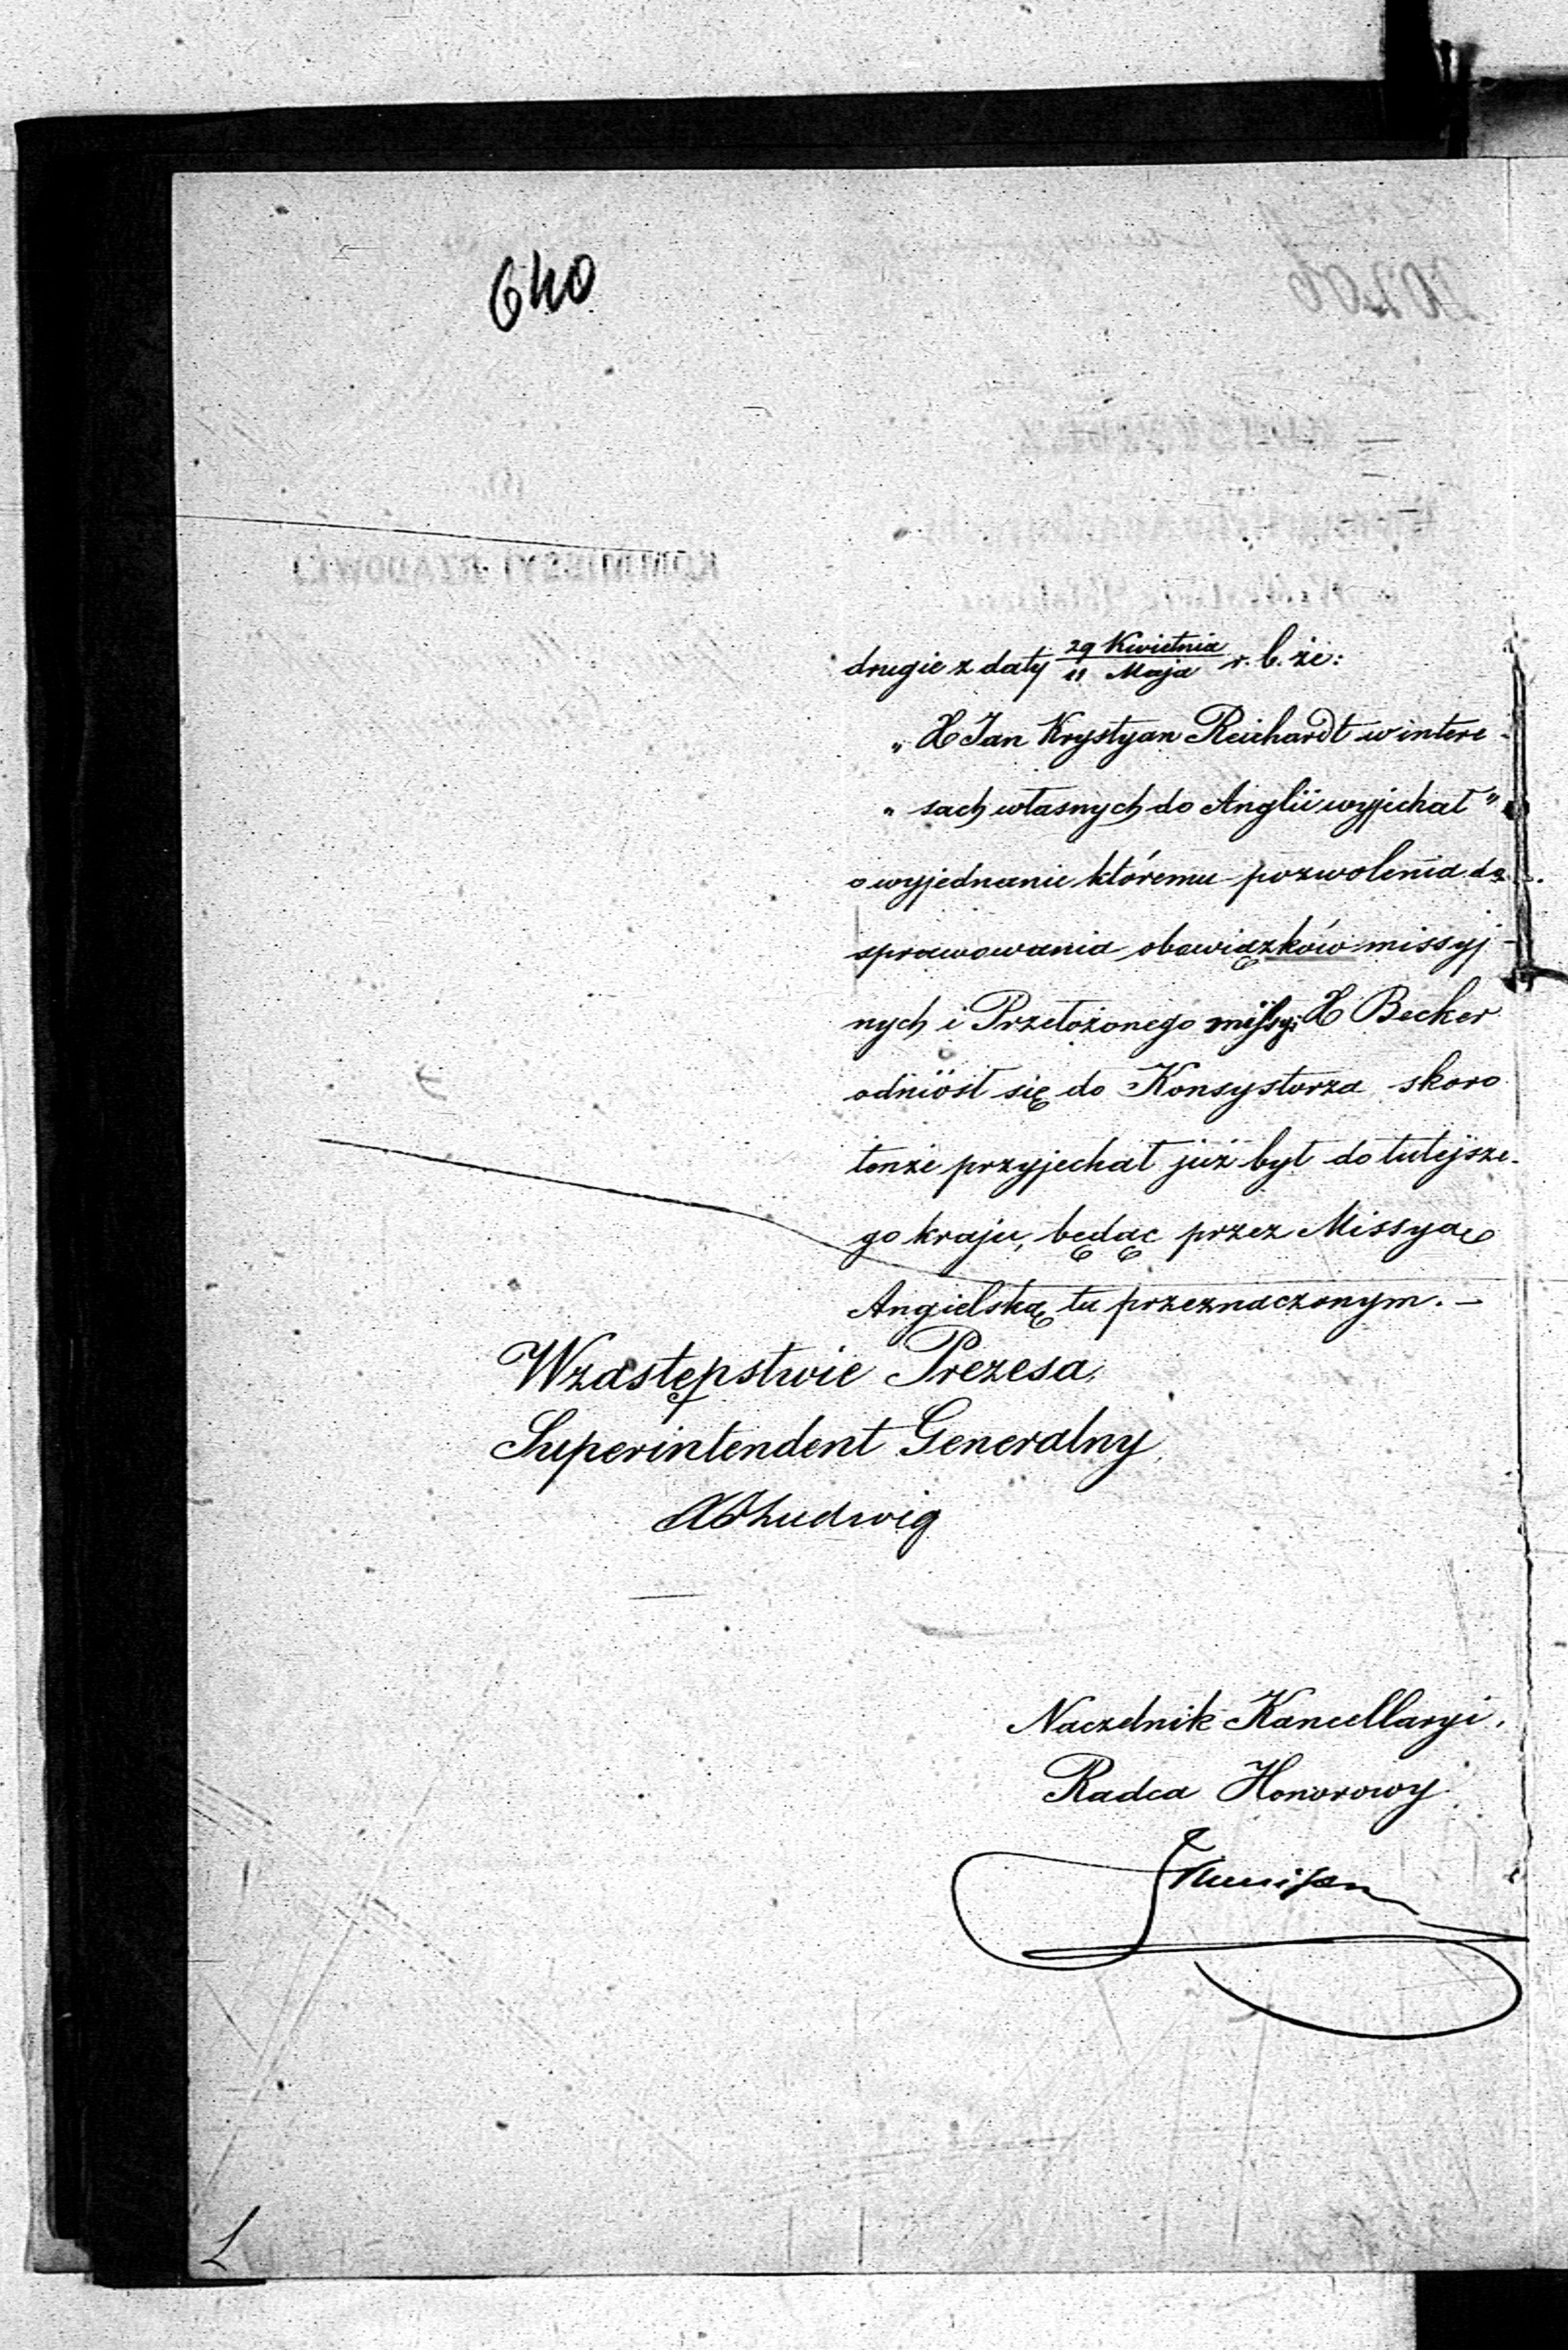 640
drugie z daty 29 Kwietnia / 11 Maja r. b. że:
„ X Jan Krystyan Reichardt w intere-
„ sach własnych do Anglii wyjechał "
o wyjednanie któremu pozwolenia do
sprawowania obowiązków missyj-
nych i Przełożonego missyi X Becker
odniósł się do Konsystorza skoro
tenże przyjechał już był do tutejsze-
go kraju, będąc przez Missyą
Angielską tu przeznaczonym. —
W zastępstwie Prezesa,
Superintendent Generalny,
Ludwig
Naczelnik Kancellaryi,
Radca Honorowy